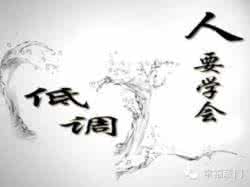 人要学会
低调